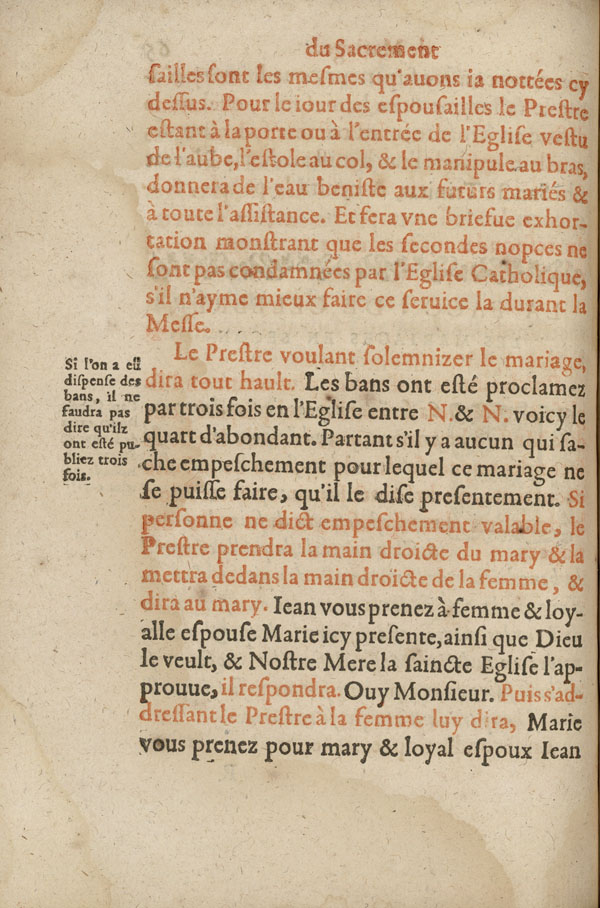 du Sacrement
ſailles ſont les meſmes qu'auons ia nottées cy
deſſus. Pour le iour des eſpouſailles le Preſtre
eſtant à la porte ou à l'entrée de l'Egliſe veſtu
de l'aube, l'eſtole au col, & le manipule au bras,
donnera de l'eau beniſte aux futurs mariés &
à toute l'aſſiſtance. Et fera vne briefue exhor-
tation monſtrant que les ſecondes nopces ne
ſont pas condamnées par l'Egliſe Catholique,
s'il n'ayme mieux faire ce ſeruice la durant la
Meſſe.
Le Preſtre voulant ſolemnizer le mariage,
dira tout hault. Les bans ont eſté proclamez
par trois fois en l'Egliſe entre N. & N. voicy le
quart d'abondant. Partant s'il y a aucun qui ſa-
che empeſchement pour lequel ce mariage ne
ſe puiſſe faire, qu'il le diſe preſentement. Si
perſonne ne dict empeſchement valable, le
Preſtre prendra la main droicte du mary & la
mettra dedans la main droïcte de la femme, &
dira au mary. Iean vous prenez à femme & loy-
alle eſpouſe Marie icy preſente, ainſi que Dieu
le veult, & Noſtre Mere la ſaincte Egliſe l'ap-
prouue, il reſpondra. Ouy Monſieur. Puis s'ad-
dreſſant le Preſtre à la femme luy dira, Marie
vous prenez pour mary & loyal eſpoux Iean
Si l'on a eû
diſpenſe des
bans, il ne
faudra pas
dire qu'ilz
ont eſté pu-
bliez trois
fois.